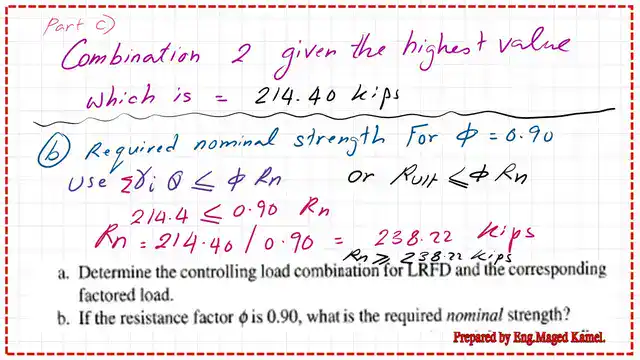 Part c)
Combination 2 given the highest value
which is = 214.40 kips
(b) Required nominal strength For ϕ = 0.90
Use Σγi Q ≤ ϕ Rn or Rult ≤ ϕ Rn
214.4 ≤ 0.90 Rn
Rn = 214.40 / 0.90 = 238.22 kips
Rn ≥ 238.22 kips
a. Determine the controlling load combination for LRFD and the corresponding
factored load.
b. If the resistance factor ϕ is 0.90, what is the required nominal strength?
Prepared by Eng.Maged Kamel.